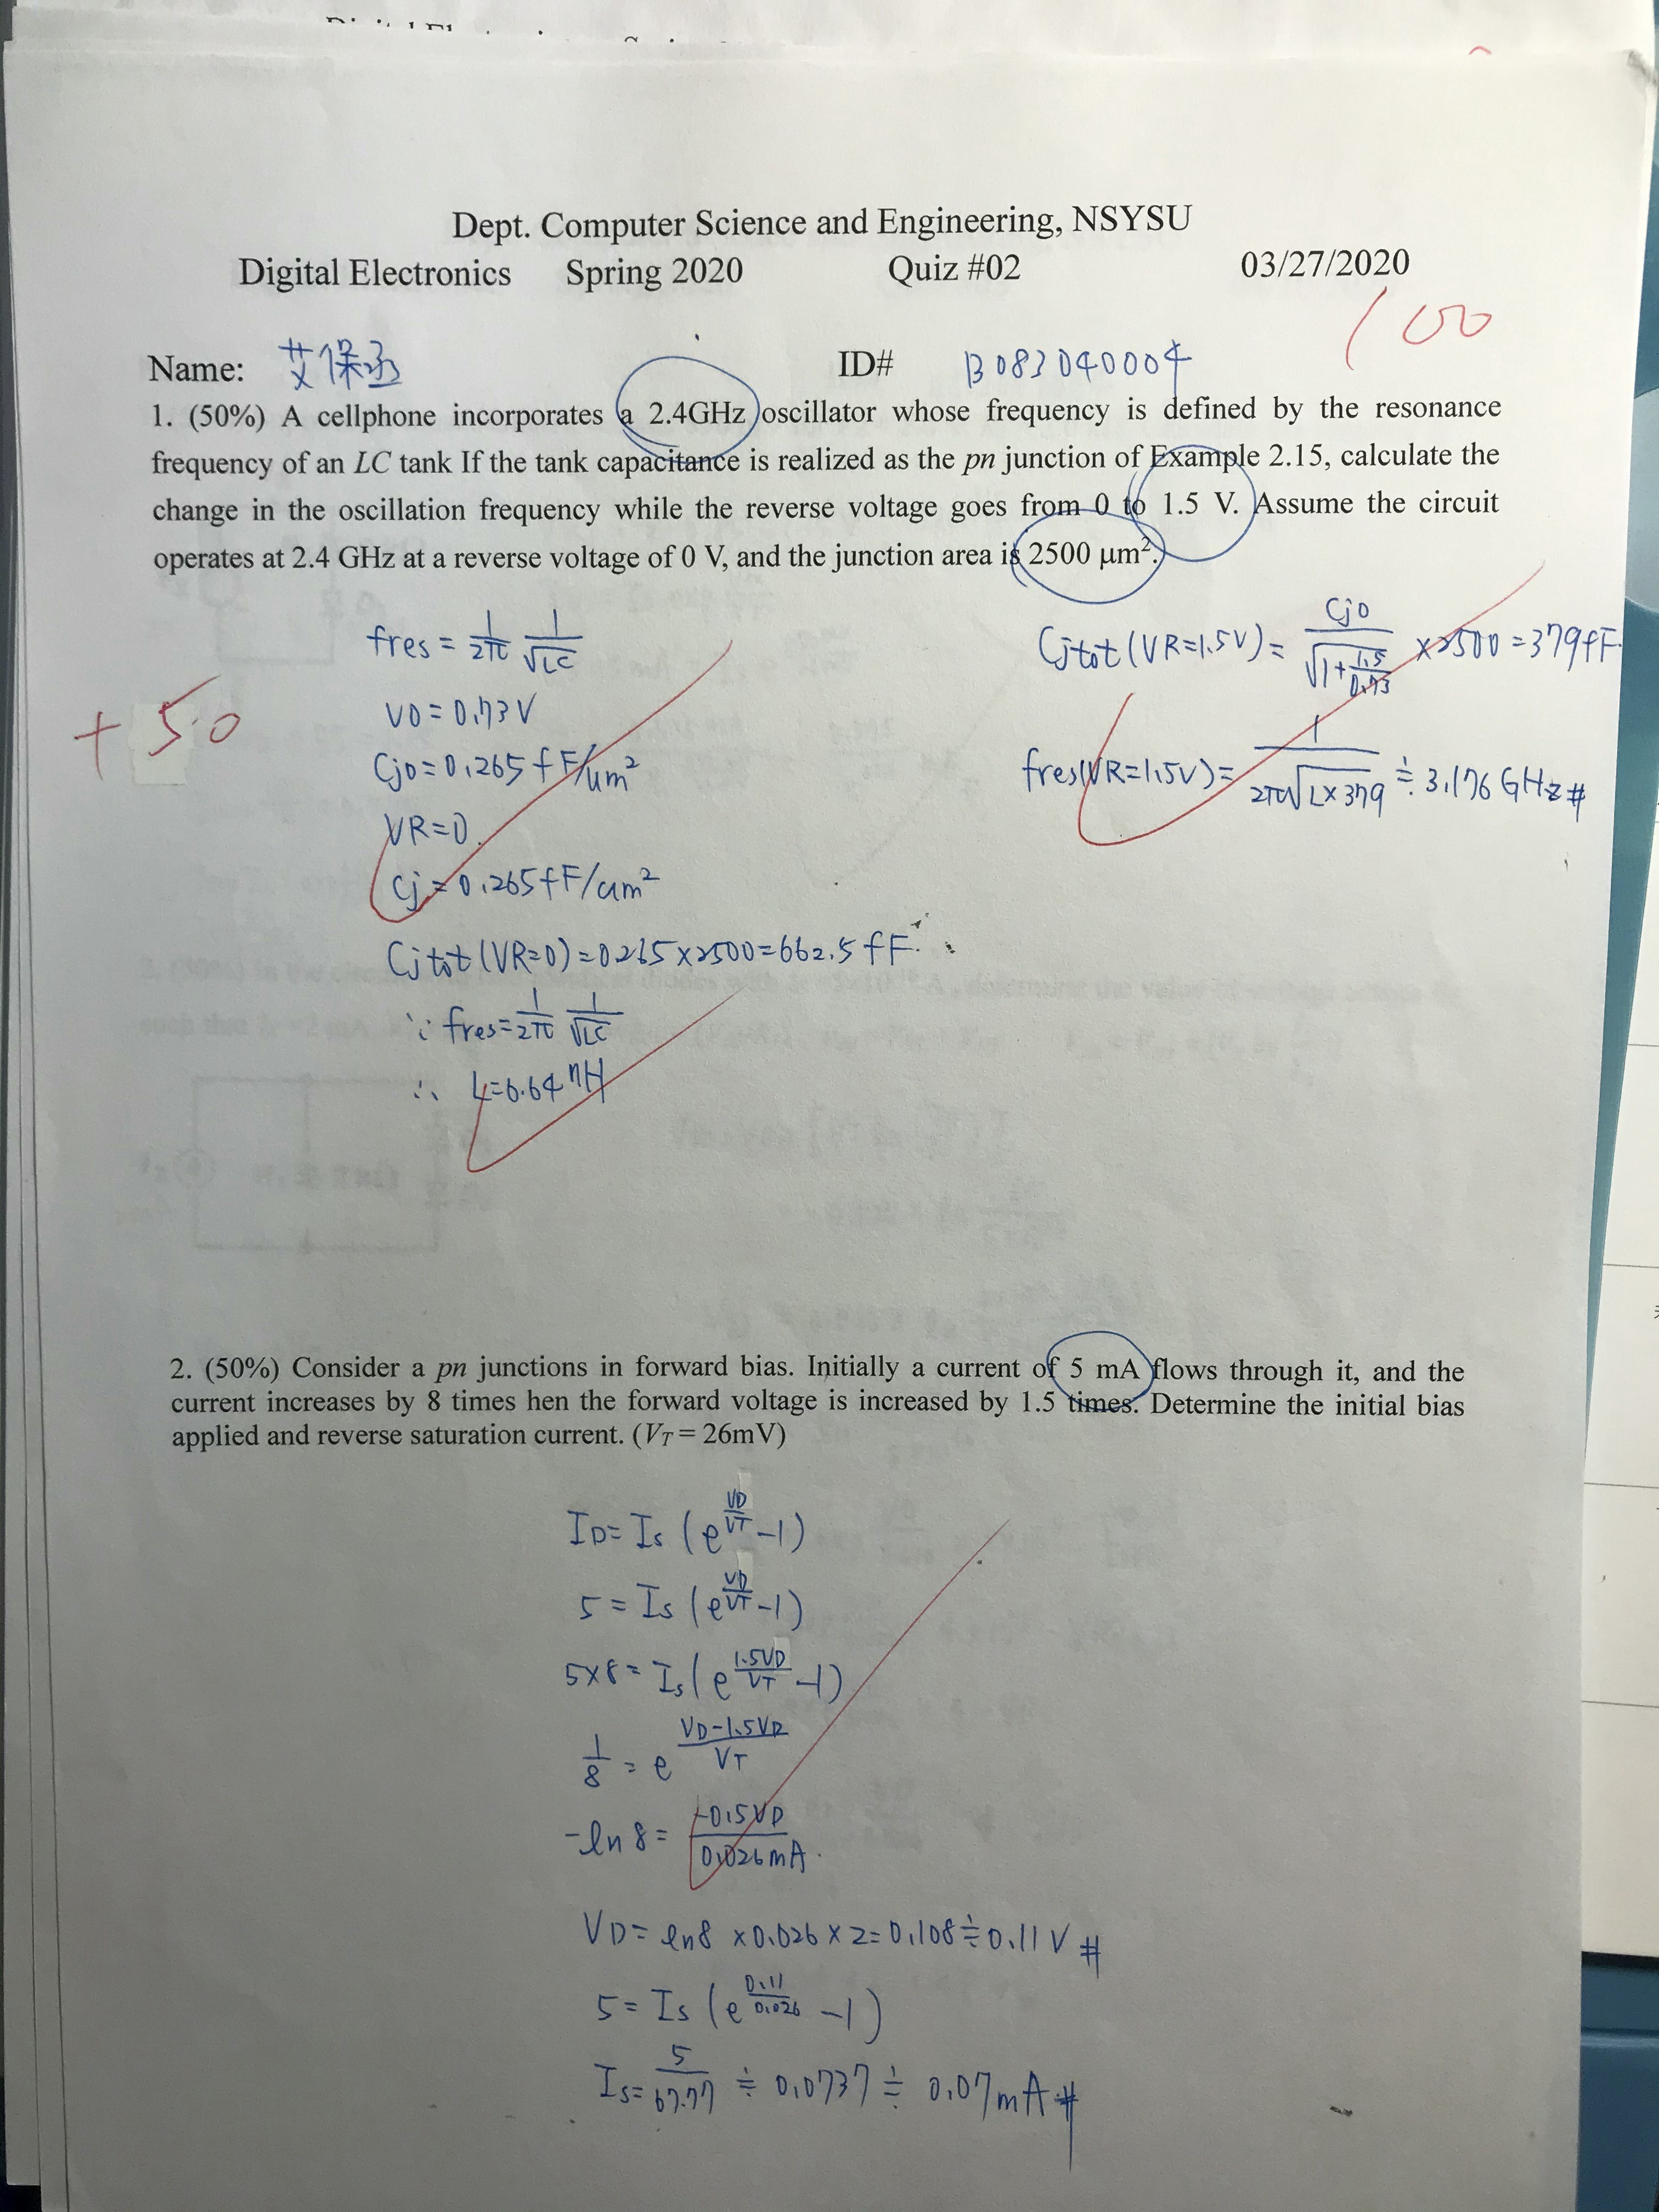 Dept. Computer Science and Engineering, NSYSU
Digital Electronics Spring 2020 Quiz #02 03/27/2020
100
Name: 艾保丞 ID# B083040004
1. (50%) A cellphone incorporates a 2.4GHz oscillator whose frequency is defined by the resonance
frequency of an LC tank If the tank capacitance is realized as the pn junction of Example 2.15, calculate the
change in the oscillation frequency while the reverse voltage goes from 0 to 1.5 V. Assume the circuit
operates at 2.4 GHz at a reverse voltage of 0 V, and the junction area is 2500 μm².
+50
fres = 1/2π 1/√LC
V0 = 0.73V
Cj0 = 0.265 fF/um²
VR=0
Cj = 0.265fF/um²
Cjtot (VR=0) = 0.265×2500=662.5 fF
∵ fres = 1/2π 1/√LC
∴ L=6.64 nH
Cjtot (VR=1.5V) = Cj0/√(1+1.5/0.73) ×2500 = 379fF
fres(VR=1.5V) = 1/2π√L×379 ≒ 3.176 GHz #
2. (50%) Consider a pn junctions in forward bias. Initially a current of 5 mA flows through it, and the
current increases by 8 times hen the forward voltage is increased by 1.5 times. Determine the initial bias
applied and reverse saturation current. (VT = 26mV)
ID = Is (e^(VD/VT) -1)
5 = Is (e^(VD/VT) -1)
5×8 = Is (e^(1.5VD/VT) -1)
1/8 = e^((VD-1.5VD)/VT)
-ln 8 = -0.5VD/0.026mA
VD = ln8 ×0.026 × 2 = 0.108 ≒ 0.11 V #
5 = Is (e^(0.11/0.026) -1)
Is = 5/67.77 ≒ 0.0737 ≒ 0.07mA #